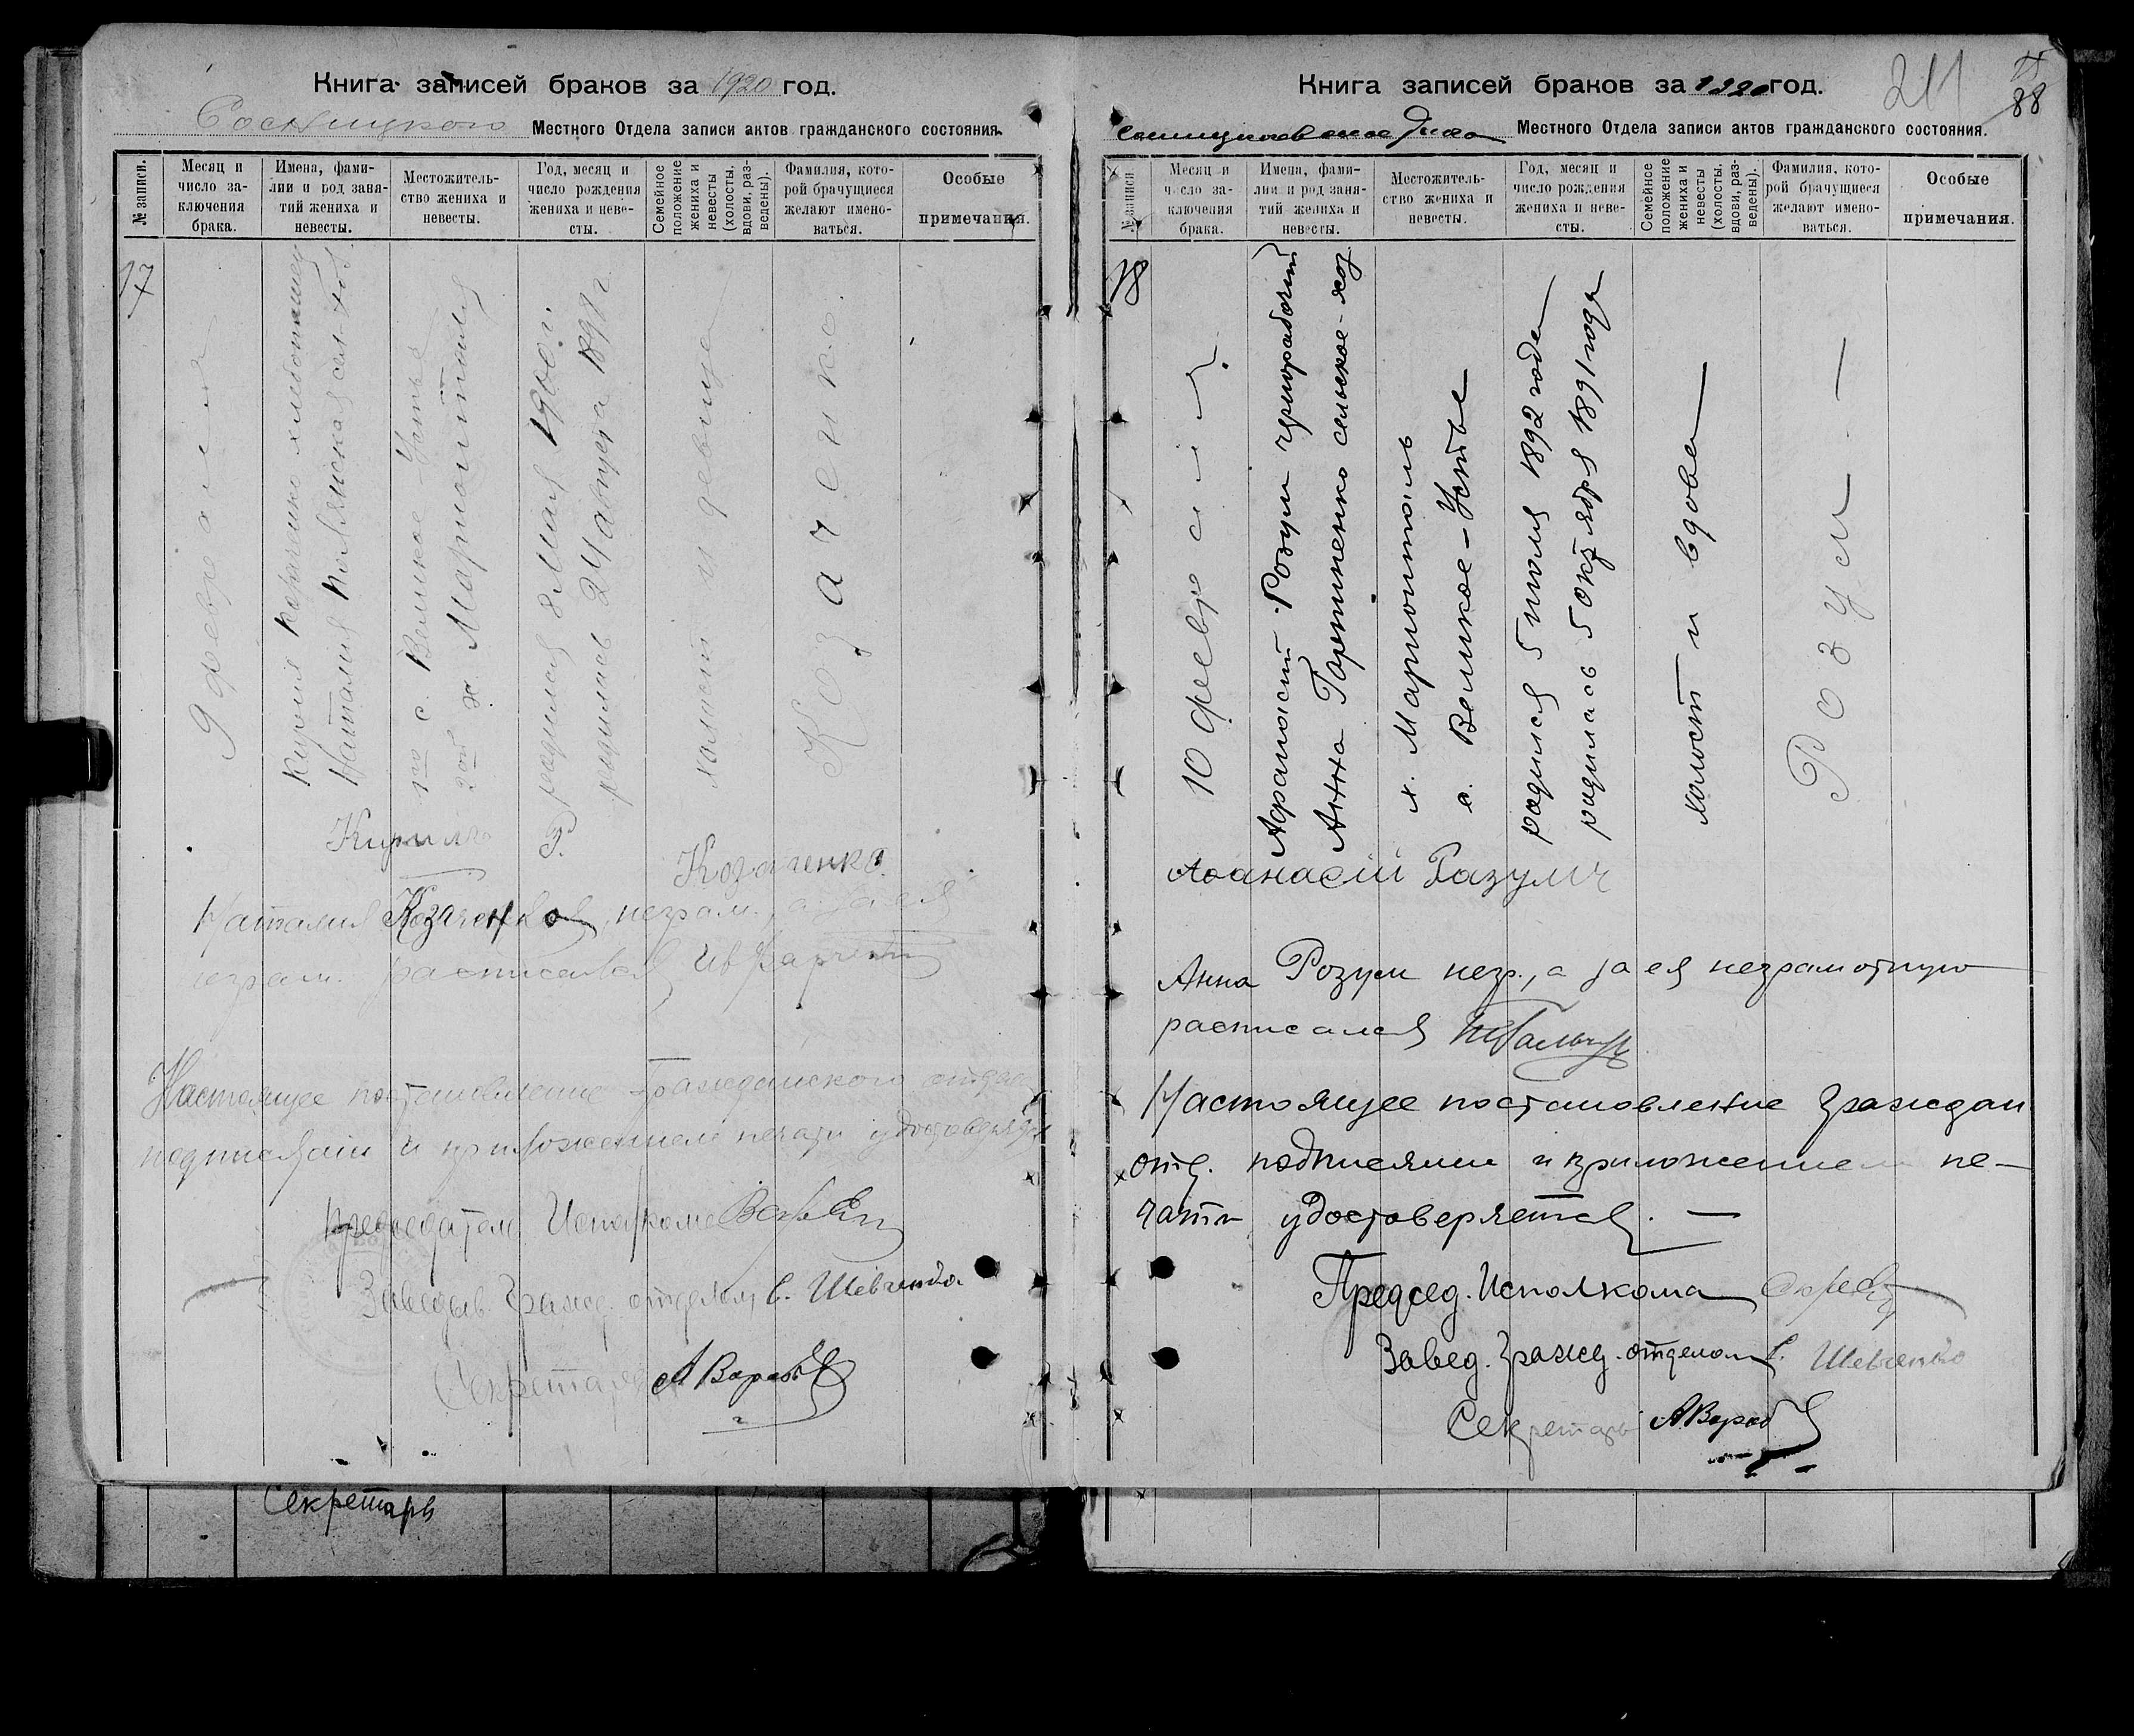 Книга записей браков за 1920 год.
Сосницкого Местного Отдела записи актов гражданского состояния.
№ записи.
Месяц и число заключения брака.
Имена, фамилии и род занятий жениха и невесты.
Местожительство жениха и невесты.
Год, месяц и число рождения жениха и невесты.
Семейное положение жениха и невесты (холосты, вдовы, разведены).
Фамилия, которой брачущиеся желают именоваться.
Особые примечания.
17
9 февраля
Кирил Козаченко хлебопашец
Наталия
с. Великое Устье
х. Мариополь
родился 8 Мая 1900 г.
родилась 24 августа 189 г.
холост и девица
Козаченко
Кирилъ Р. Козаченко
Наталия Козаченкова, неграм., а за ея
неграм. расписался
Настоящее постановление гражданского отдела
подписями и приложением печати удостоверяется
Председатель Исполкома
Заведыв. гражд. отделом С. Шевченко
Секретарь А Вороб
Секретарь
Книга записей браков за 1920 год.
Местного Отдела записи актов гражданского состояния.
№ записи
Месяц и число заключения брака.
Имена, фамилии и род занятий жениха и невесты.
Местожительство жениха и невесты.
Год, месяц и число рождения жениха и невесты.
Семейное положение жениха и невесты (холосты, вдовы, разведены).
Фамилия, которой брачущиеся желают именоваться.
Особые примечания.
211
88
18
10 февраля
Афанасий Розум чернорабочий
Анна сельское-хоз
х. Мариополь
с. Великое-Устье
родился 5 июля 1892 года
родилась 5 октября 1891 года
холост и вдова
Розум —
Аѳанасій Разумъ
Анна Розум негр., а за ея неграмотную
расписался
Настоящее постановление граждан
отд. подписями и приложением пе-
чати удостоверяется. —
Председ. Исполкома
Завед. гражд. отделом С. Шевченко
Секретарь А Вороб